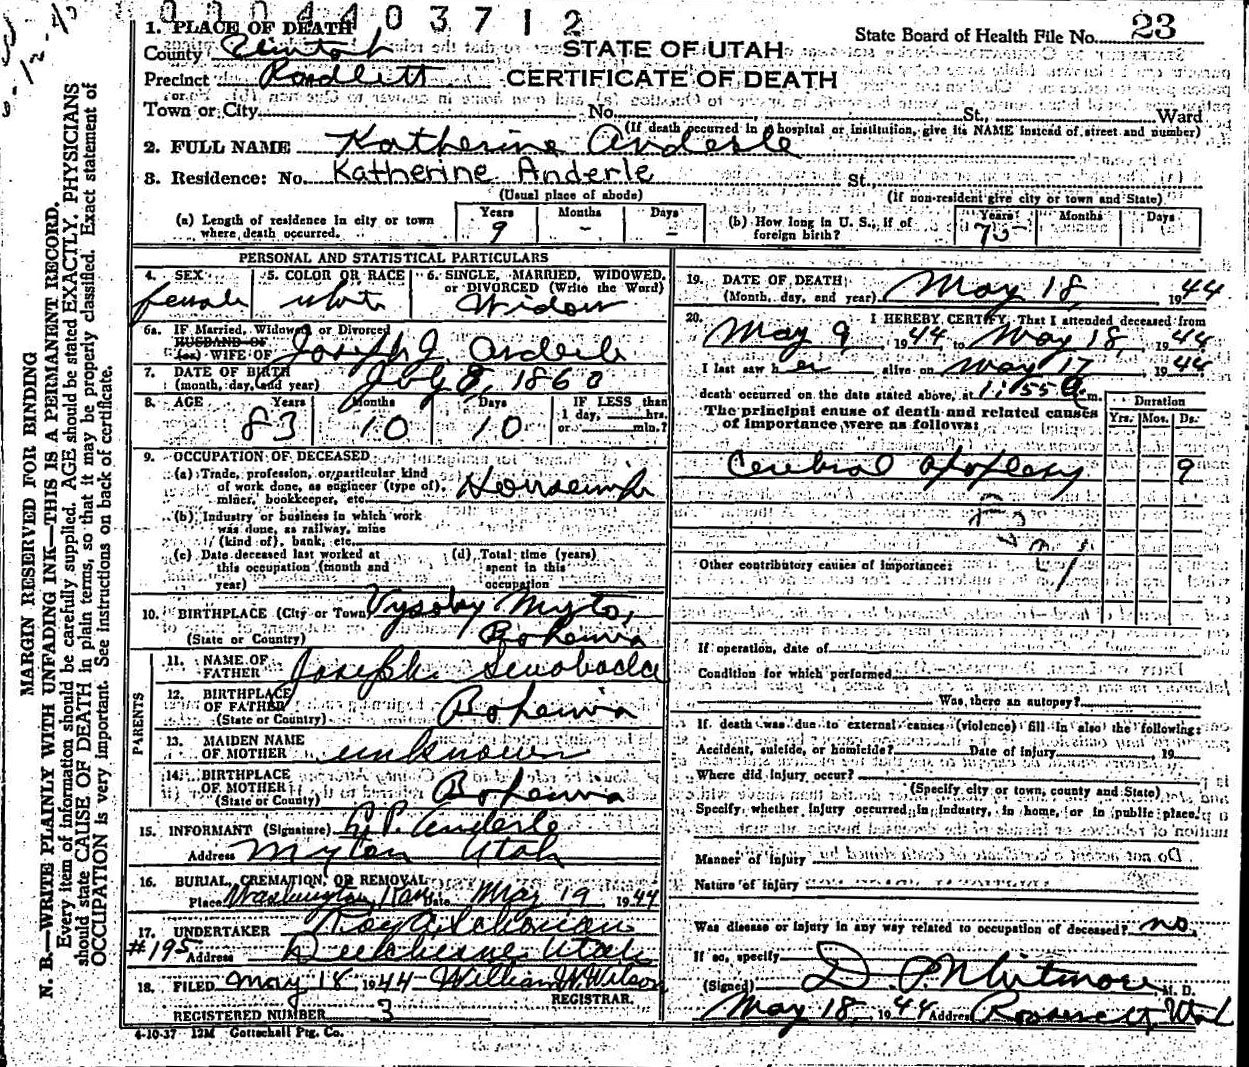 0004403712
1. PLACE OF DEATH
County Uintah
Precinct Randlett
or
Town or City
STATE OF UTAH
CERTIFICATE OF DEATH
State Board of Health File No. 23
No. St., Ward
(If death occurred in a hospital or institution, give its NAME instead of street and number)
2. FULL NAME Katherine Anderle
3. Residence: No. Katherine Anderle St.
(Usual place of abode) (If non-resident give city or town and State)
(a) Length of residence in city or town where death occurred. Years 9 Months - Days -
(b) How long in U. S., if of foreign birth? Years 75 Months Days
PERSONAL AND STATISTICAL PARTICULARS
4. SEX female
5. COLOR OR RACE white
6. SINGLE, MARRIED, WIDOWED, or DIVORCED (Write the Word) Widow
6a. IF Married, Widowed or Divorced
HUSBAND OF
(or) WIFE OF Joseph J. Anderle
7. DATE OF BIRTH
(month, day, and year) July 8, 1860
8. AGE Years 83 Months 10 Days 10 IF LESS than 1 day, hrs. or min.?
9. OCCUPATION OF DECEASED
(a) Trade, profession, or particular kind
of work done, as engineer (type of),
miner, bookkeeper, etc. Housewife
(b) Industry or business in which work
was done, as railway, mine
(kind of), bank, etc.
(c) Date deceased last worked at
this occupation (month and
year)
(d) Total time (years)
spent in this
occupation
10. BIRTHPLACE (City or Town) Vysoky Myto,
(State or Country) Bohemia
PARENTS
11. NAME OF FATHER Joseph Swoboda
12. BIRTHPLACE OF FATHER
(State or Country) Bohemia
13. MAIDEN NAME OF MOTHER unknown
14. BIRTHPLACE OF MOTHER
(State or County) Bohemia
15. INFORMANT (Signature) P. Anderle
Address Myton Utah
16. BURIAL, CREMATION, OR REMOVAL
Place Washington, Kan Date May 19 1944
17. UNDERTAKER Roy A. Schonian
#195 Address Duchesne Utah
18. FILED May 18, 1944 William W. Wilson
REGISTRAR.
REGISTERED NUMBER 3
4-10-37 12M Gottschall Ptg. Co.
19. DATE OF DEATH:
(Month, day, and year) May 18, 1944
20. I HEREBY CERTIFY, That I attended deceased from
May 9, 1944 to May 18, 1944
I last saw her alive on May 17 1944
death occurred on the date stated above, at 1:55 a m.
The principal cause of death and related causes
of importance were as follows:
Duration
Yrs. Mos. Ds.
Cerebral apoplexy 9
Other contributory causes of importance:
If operation, date of
Condition for which performed
Was there an autopsy?
If death was due to external causes (violence) fill in also the following:
Accident, suicide, or homicide? Date of injury 19
Where did injury occur?
(Specify city or town, county and State)
Specify whether injury occurred in industry, in home, or in public place.
Manner of injury
Nature of injury
Was disease or injury in any way related to occupation of deceased? no.
If so, specify
(Signed) D. P. Whitmore M. D.
May 18, 1944 Address Roosevelt, Utah
MARGIN RESERVED FOR BINDING
N. B.—WRITE PLAINLY WITH UNFADING INK—THIS IS A PERMANENT RECORD.
Every item of information should be carefully supplied. AGE should be stated EXACTLY. PHYSICIANS
should state CAUSE OF DEATH in plain terms, so that it may be properly classified. Exact statement of
OCCUPATION is very important. See instructions on back of certificate.